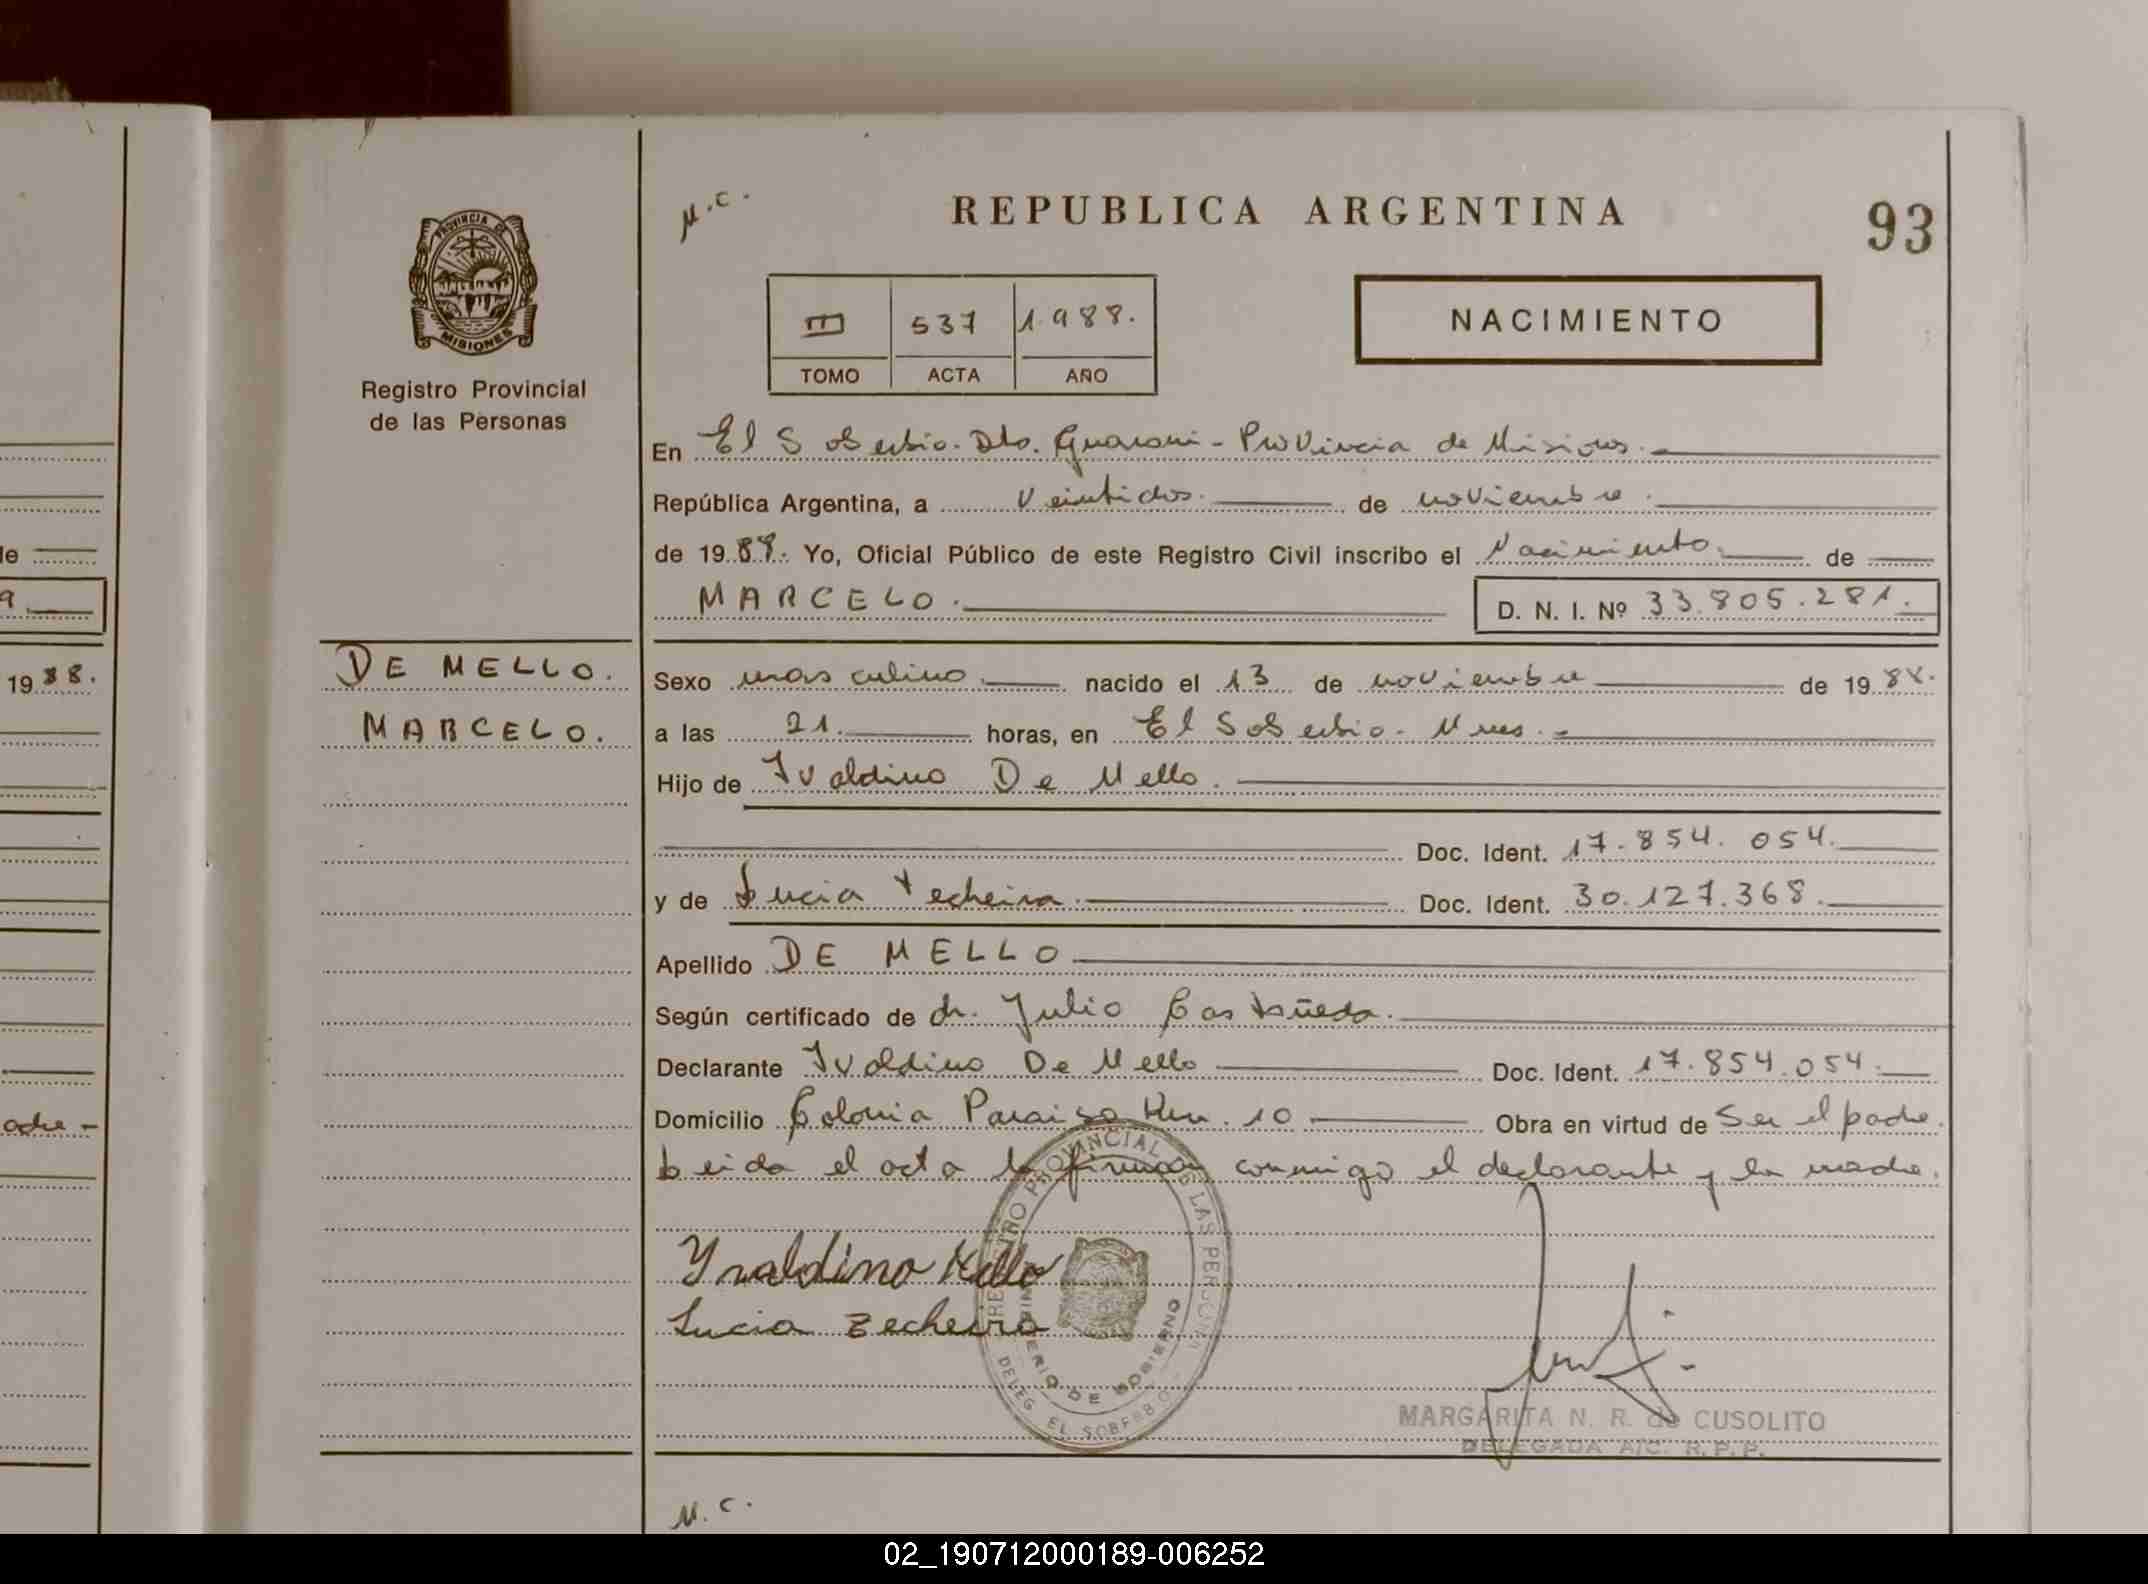 le
9
1988.
adre -
PROVINCIA DE
MISIONES
Registro Provincial
de las Personas
DE MELLO.
MARCELO.
M.C.
REPUBLICA ARGENTINA
93
III 537 1.988.
TOMO ACTA AÑO
NACIMIENTO
En El Soberbio. Dto. Guarani - Provincia de Misiones.
República Argentina, a Veintidos. de noviembre.
de 1988. Yo, Oficial Público de este Registro Civil inscribo el Nacimiento. de
MARCELO. D. N. I. Nº 33.805.281.
Sexo masculino. nacido el 13 de noviembre de 1988.
a las 21. horas, en El Soberbio. Mnes. -
Hijo de Ivaldino De Mello.
Doc. Ident. 17.854.054.
y de Lucia Techeira. Doc. Ident. 30.127.368.
Apellido DE MELLO
Según certificado de dr. Julio Castañeda.
Declarante Ivaldino De Mello Doc. Ident. 17.854.054.
Domicilio Colonia Paraiso Km. 10 Obra en virtud de Ser el padre.
Leida el acta la firman conmigo el declarante y la madre.
Yvaldino Mello
Lucia Zecheira
REGISTRO PROVINCIAL DE LAS PERSONAS
MINISTERIO DE GOBIERNO
DELEG. EL SOBERBIO
MARGARITA N. R. de CUSOLITO
DELEGADA A/C. R.P.P.
M.C.
02_190712000189-006252